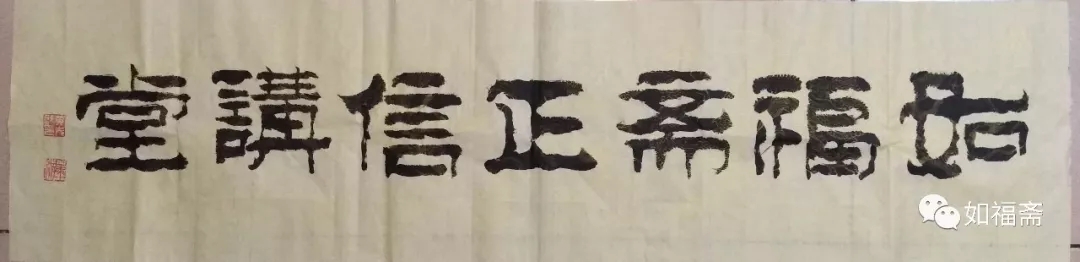 如福斋正信講堂
如福斋